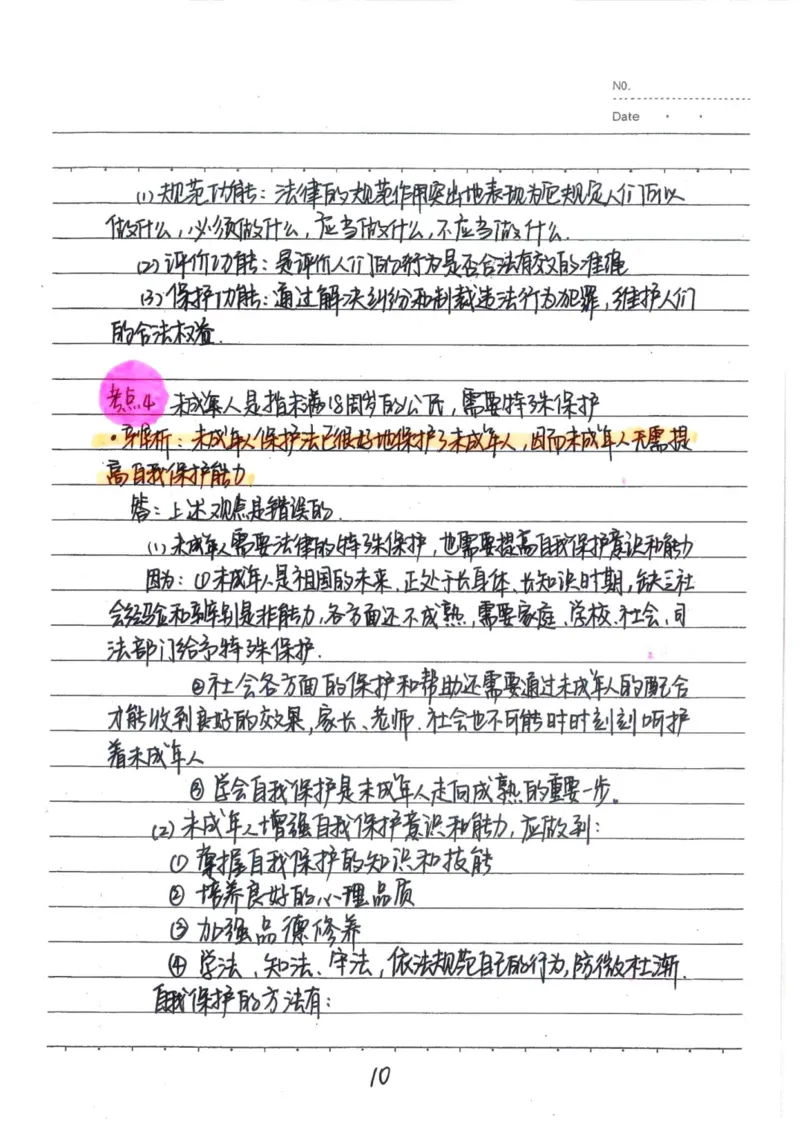 NO.
Date
(1)规范功能：法律的规范作用突出地表现为它规定人们可以
做什么，必须做什么，应当做什么，不应当做什么．
(2)评价功能：是评价人们的行为是否合法有效的准绳
(3)保护功能：通过解决纠纷和制裁违法行为犯罪，维护人们
的合法权益．
考点4 未成年人是指未满18周岁的公民，需要特殊保护
·辨析：未成年人保护法已很好地保护了未成年人，因而未成年人无需提
高自我保护能力
答：上述观点是错误的．
(1)未成年人需要法律的特殊保护，也需要提高自我保护意识和能力
因为：①未成年人是祖国的未来，正处于长身体、长知识时期，缺乏社
会经验和辨别是非能力，各方面还不成熟，需要家庭、学校、社会、司
法部门给予特殊保护．
②社会各方面的保护和帮助还需要通过未成年人的配合
才能收到良好的效果，家长、老师、社会也不可能时时刻刻呵护
着未成年人
③学会自我保护是未成年人走向成熟的重要一步。
(2)未成年人增强自我保护意识和能力，应做到：
①掌握自我保护的知识和技能
②培养良好的心理品质
③加强品德修养
④学法、知法、守法，依法规范自己的行为，防微杜渐．
自我保护的方法有：
10